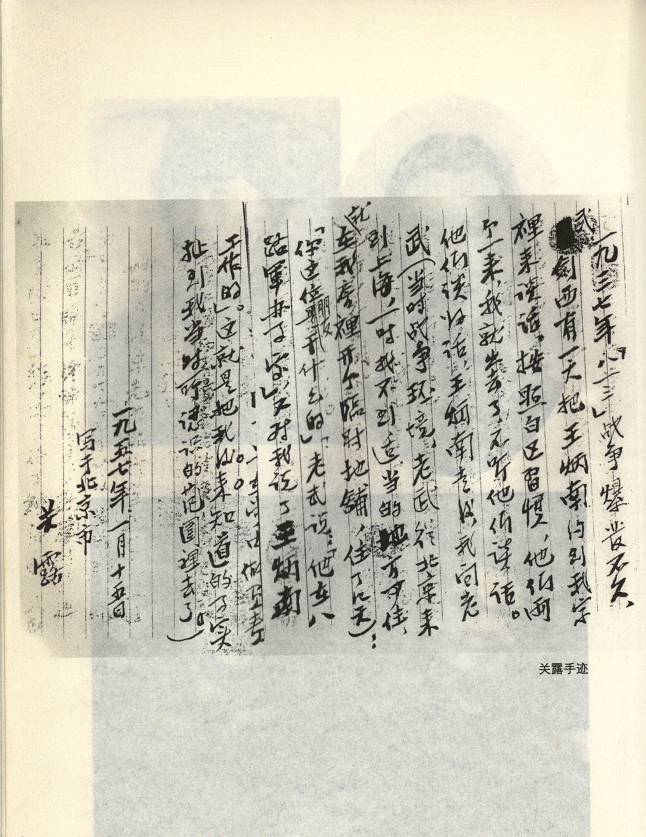 一九三七年「八一三」战争爆发不久、
武剑西有一天把王炳南约到我家
裡来谈话。按照白区習慣，他们两
个一来，我就出去了，不听他们谈话。
他们谈好话，王炳南走后，我问老
武（当时战争环境，老武从北京来
到上海，一时找不到适当的地方可住，
就在我房裡开个臨时地舖，住了几天）：
「你这位朋友是干什么的」老武说：「他在八
路軍办事宗」又对我说了王炳南
工作的」这就是把我后来知道的事实
扯到我当时所认识的范圍裡去了。）
一九五七年一月十五日
写于北京市
关露
关露手迹